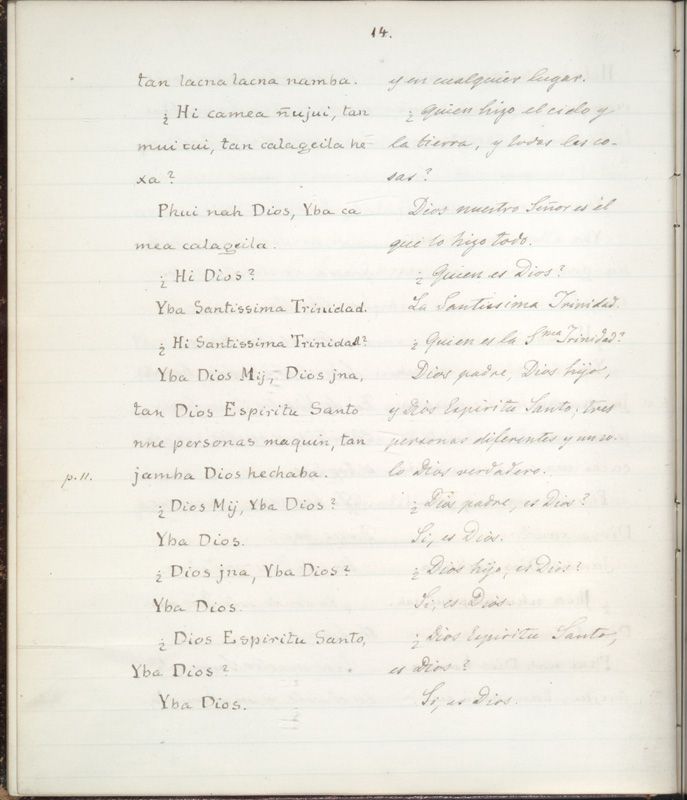 14.
tan lacna lacna namba.
¿ Hi camea ñujui, tan
mui cui, tan calageila hē-
xa?
Phui nah Dios, Yba ca
mea calageila.
¿ Hi Dios?
Yba Santissima Trinidad.
¿ Hi Santissima Trinidad?
Yba Dios Mij, Dios jna,
tan Dios Espiritu Santo
nne personas maquin, tan
p. 11. jamba Dios hechaba.
¿ Dios Mij, Yba Dios?
Yba Dios.
¿ Dios jna, Yba Dios?
Yba Dios.
¿ Dios Espiritu Santo,
Yba Dios?
Yba Dios.
y en cualquier lugar.
¿ Quien hizo el cielo y
la tierra, y todas las co-
sas?
Dios nuestro Señor es él
que lo hizo todo.
¿ Quien es Dios?
La Santissima Trinidad.
¿ Quien es la Sma Trinidad?
Dios padre, Dios hijo,
y Dios Espiritu Santo; tres
personas diferentes y un so-
lo Dios verdadero.
¿ Dios padre, es Dios?
Si, es Dios.
¿ Dios hijo, es Dios?
Si, es Dios.
¿ Dios Espiritu Santo,
es Dios?
Si, es Dios.